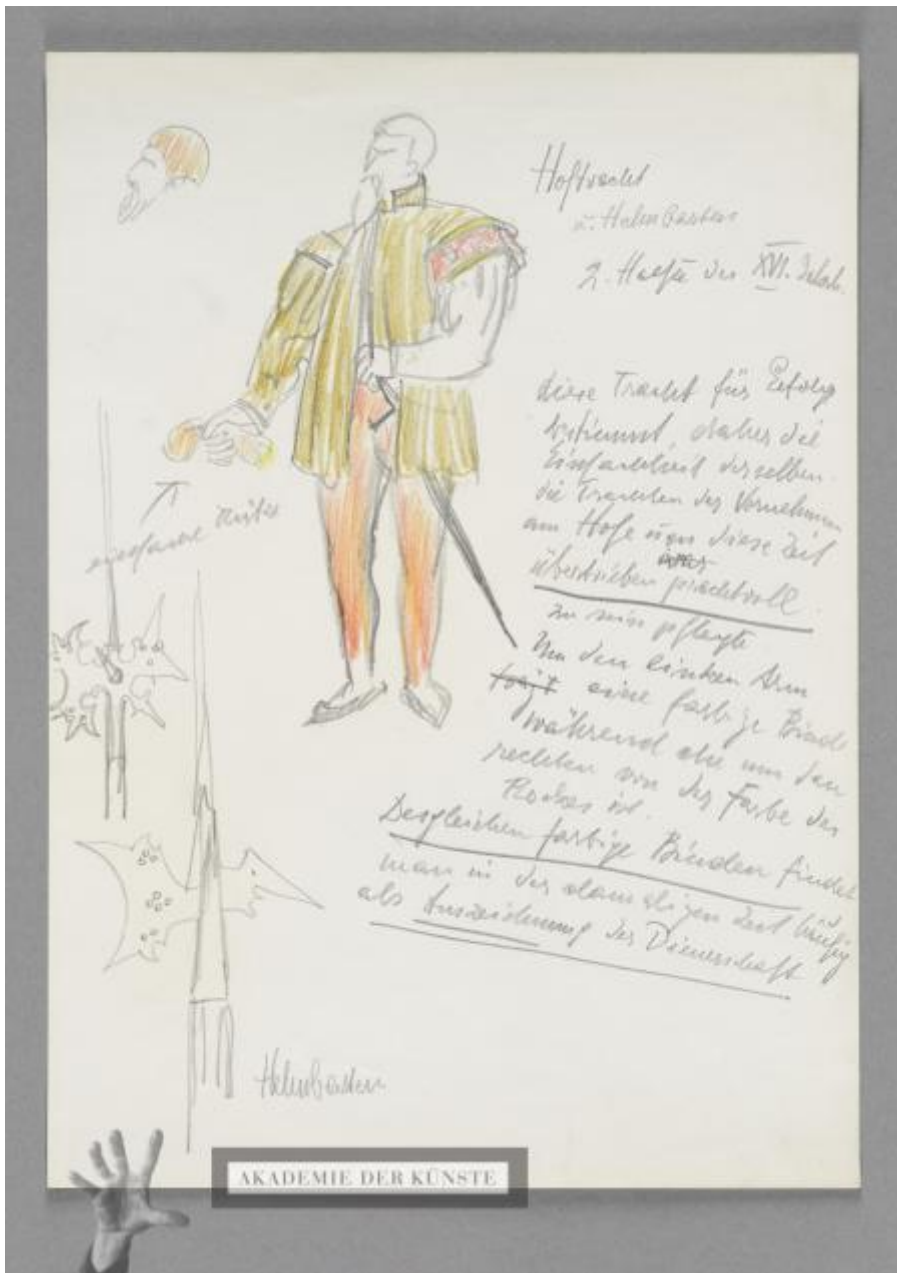 Hoftracht
u. Helmbarten
2. Haelfte des XVI. Jahrh.
diese Tracht für Gefolg
bestimmt, daher die
Einfachheit derselben.
die Trachten der Vornehmen
am Hofe um diese Zeit
übertrieben prachtvoll.
zu sein pflegte
Um den linken Arm
trägt eine farbige Binde
während die um den
rechten von der Farbe des
Rockes ist.
Desgleichen farbige Binden findet
man in der damaligen Zeit häufig
als Auszeichnung der Dienerschaft
einfache Mütze
Helmbarten
AKADEMIE DER KÜNSTE